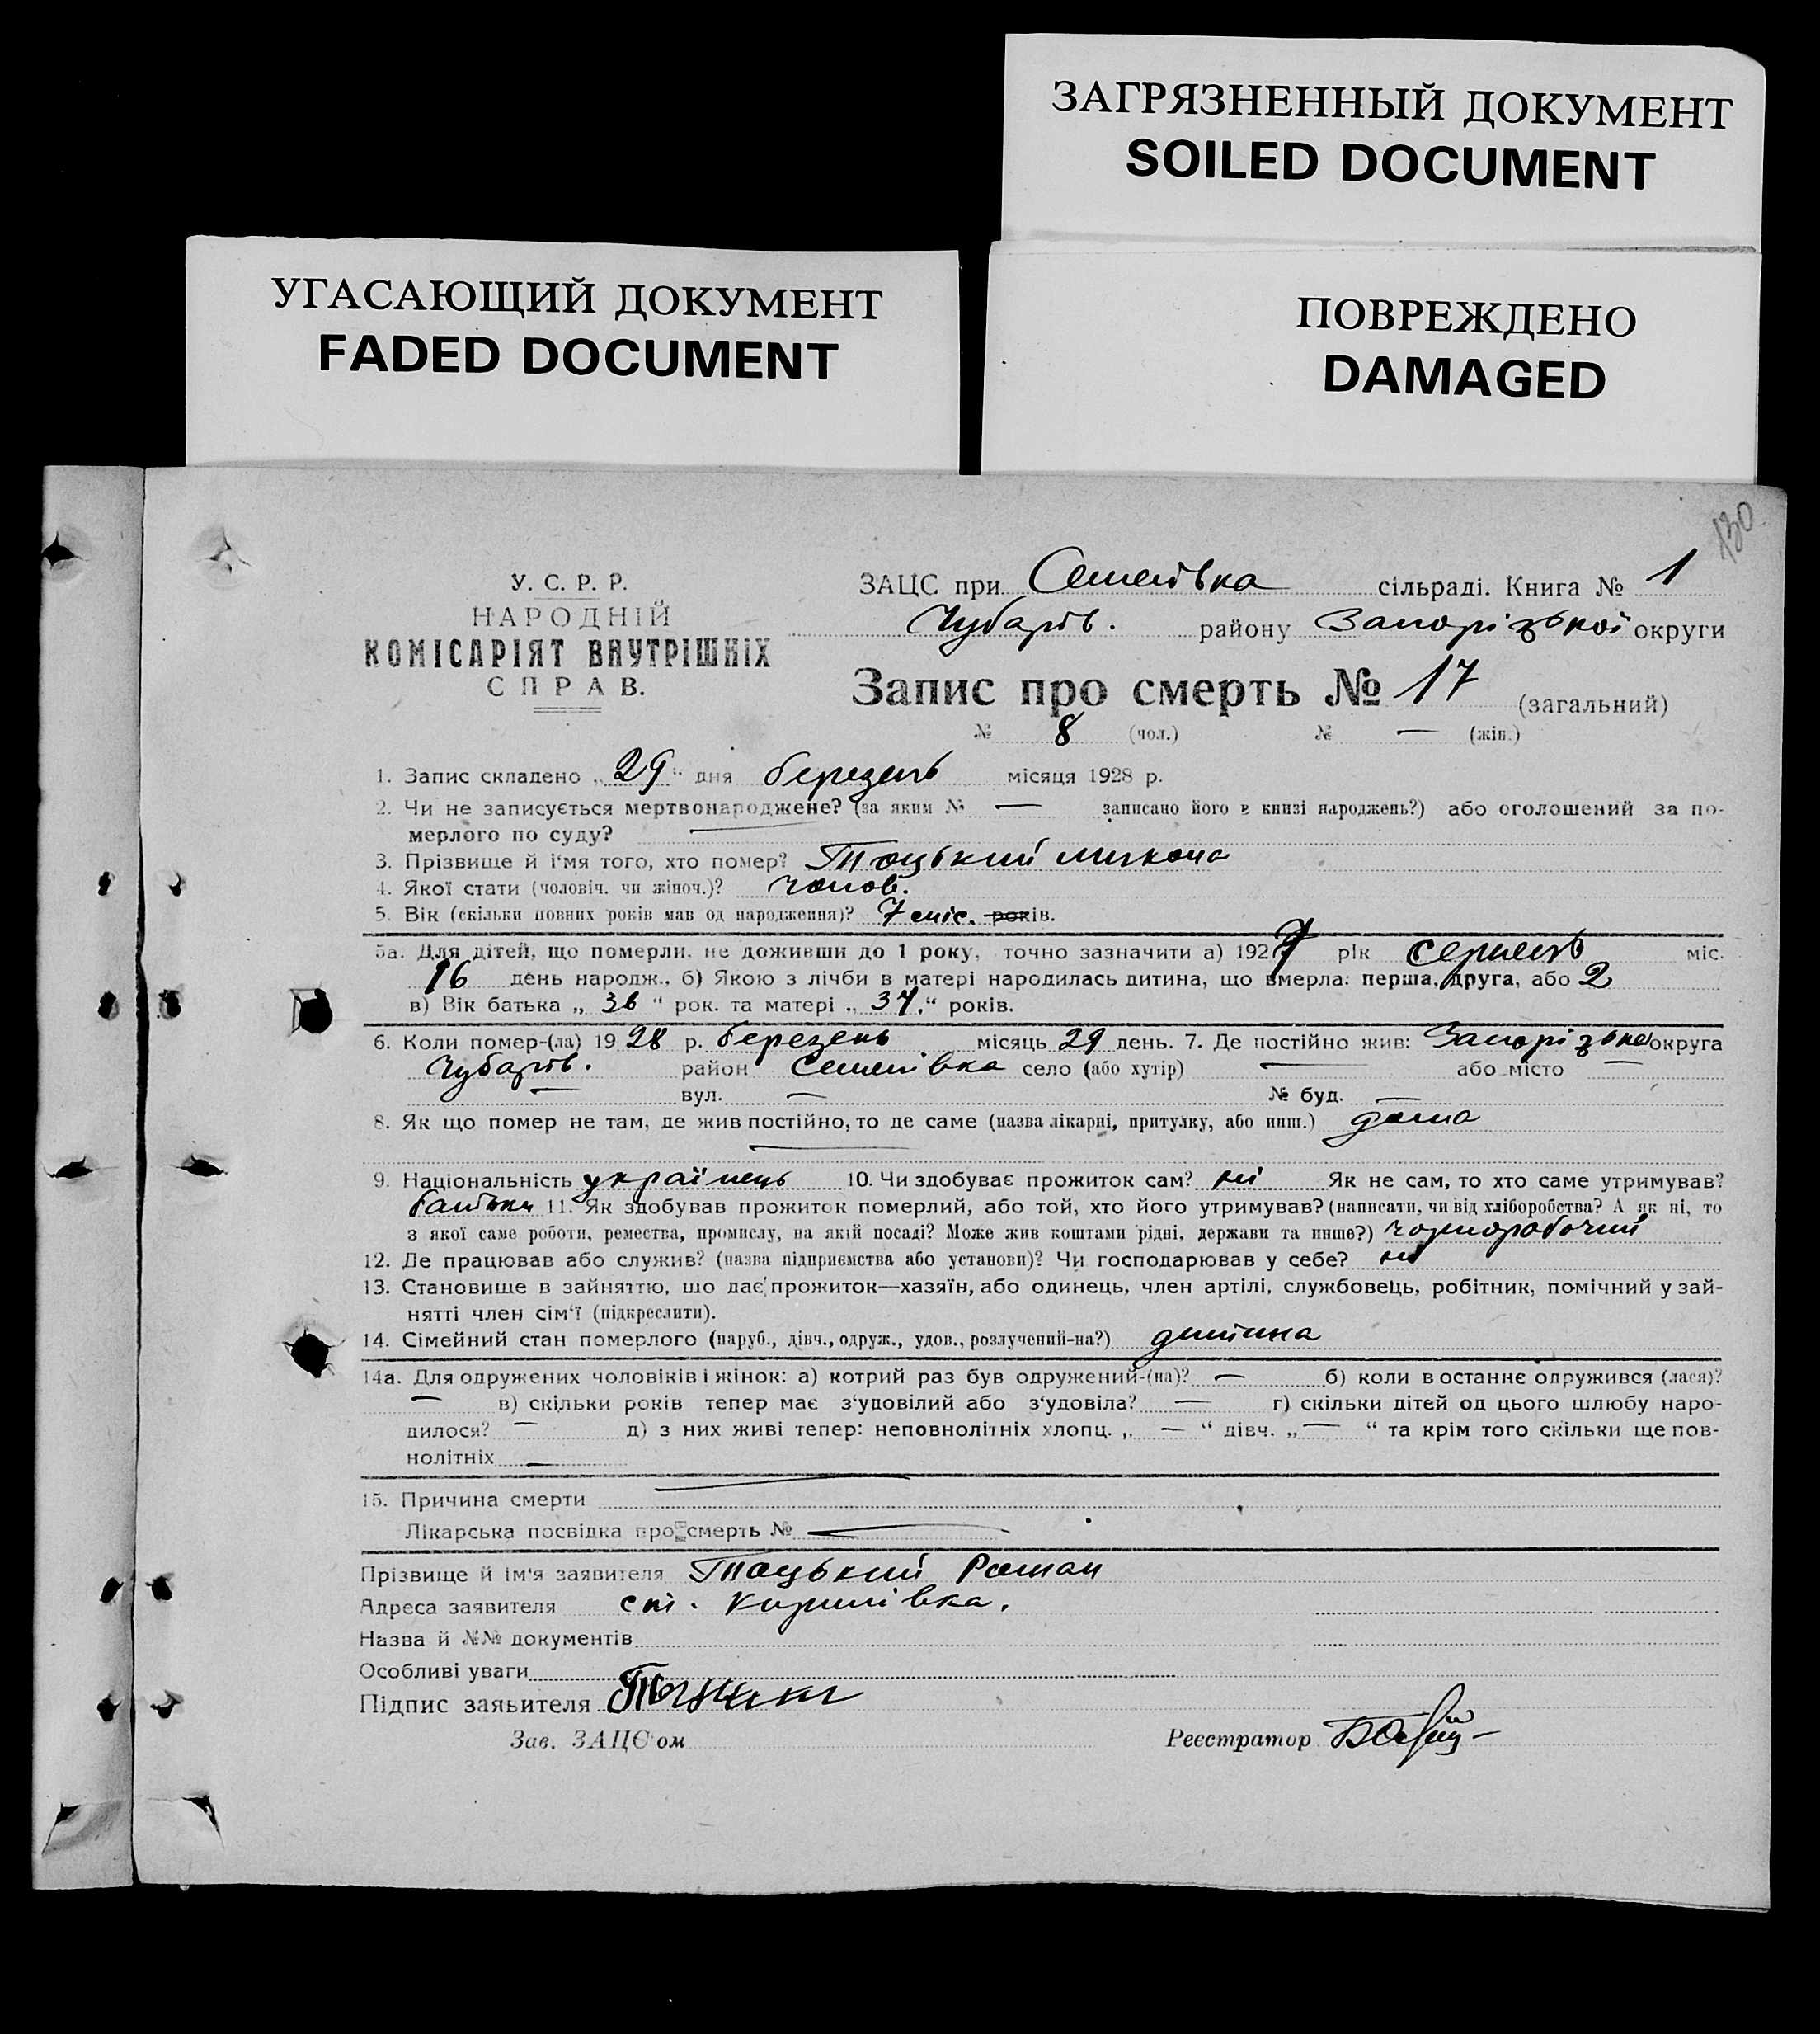 ЗАГРЯЗНЕННЫЙ ДОКУМЕНТ
SOILED DOCUMENT
УГАСАЮЩИЙ ДОКУМЕНТ
FADED DOCUMENT
ПОВРЕЖДЕНО
DAMAGED
130
У. С. Р. Р.
НАРОДНІЙ
КОМІСАРІЯТ ВНУТРІШНІХ
СПРАВ.
ЗАЦС при Семенівка сільраді. Книга № 1
Чубарів. району Запорізької округи
Запис про смерть № 17 (загальний)
№ 8 (чол.) № — (жін.)
1. Запис складено „29“ дня березень місяця 1928 р.
2. Чи не записується мертвонароджене? (за яким № — записано його в книзі народжень?) або оголошений за по-
мерлого по суду? —
3. Прізвище й і'мя того, хто помер? Тоцький Микола
4. Якої стати (чоловіч. чи жіноч.)? чолов.
5. Вік (скільки повних років мав од народження)? 7 міс. років.
5а. Для дітей, що померли, не доживши до 1 року, точно зазначити а) 1927 рік серпень міс.
16 день народж., б) Якою з лічби в матері народилась дитина, що вмерла: перша, друга, або 2
в) Вік батька „36“ рок. та матері „37.“ років.
6. Коли помер-(ла) 1928 р. березень місяць 29 день. 7. Де постійно жив: Запорізька округа
Чубарів. район Семенівка село (або хутір) — або місто —
— вул. — № буд. —
8. Як що помер не там, де жив постійно, то де саме (назва лікарні, притулку, або инш.) дома
—
9. Національність українець 10. Чи здобуває прожиток сам? ні Як не сам, то хто саме утримував?
батьки 11. Як здобував прожиток померлий, або той, хто його утримував? (написати, чи від хліборобства? А як ні, то
з якої саме роботи, ремества, промислу, на якій посаді? Може жив коштами рідні, держави та инше?) чорноробочий
12. Де працював або служив? (назва підприємства або установи)? Чи господарював у себе? ні
13. Становище в зайняттю, шо дає прожиток—хазяїн, або одинець, член артілі, службовець, робітник, помічний у зай-
нятті член сім'ї (підкреслити).
14. Сімейний стан померлого (паруб., дівч., одруж., удов., розлучений-на?) дитина
14а. Для одружених чоловіків і жінок: а) котрий раз був одружений-(на)? — б) коли востаннє одружився (лася)?
— в) скільки років тепер має з'удовілий або з'удовіла? — г) скільки дітей од цього шлюбу наро-
дилося? — д) з них живі тепер: неповнолітніх хлопц. „ — “ дівч. „ — “ та крім того скільки ще пов-
нолітніх —
15. Причина смерти —
Лікарська посвідка про смерть № —
Прізвище й ім'я заявителя Тоцький Роман
Адреса заявителя ст. Кирилівка.
Назва й №№ документів
Особливі уваги
Підпис заявителя
Зав. ЗАЦС'ом
Реєстратор